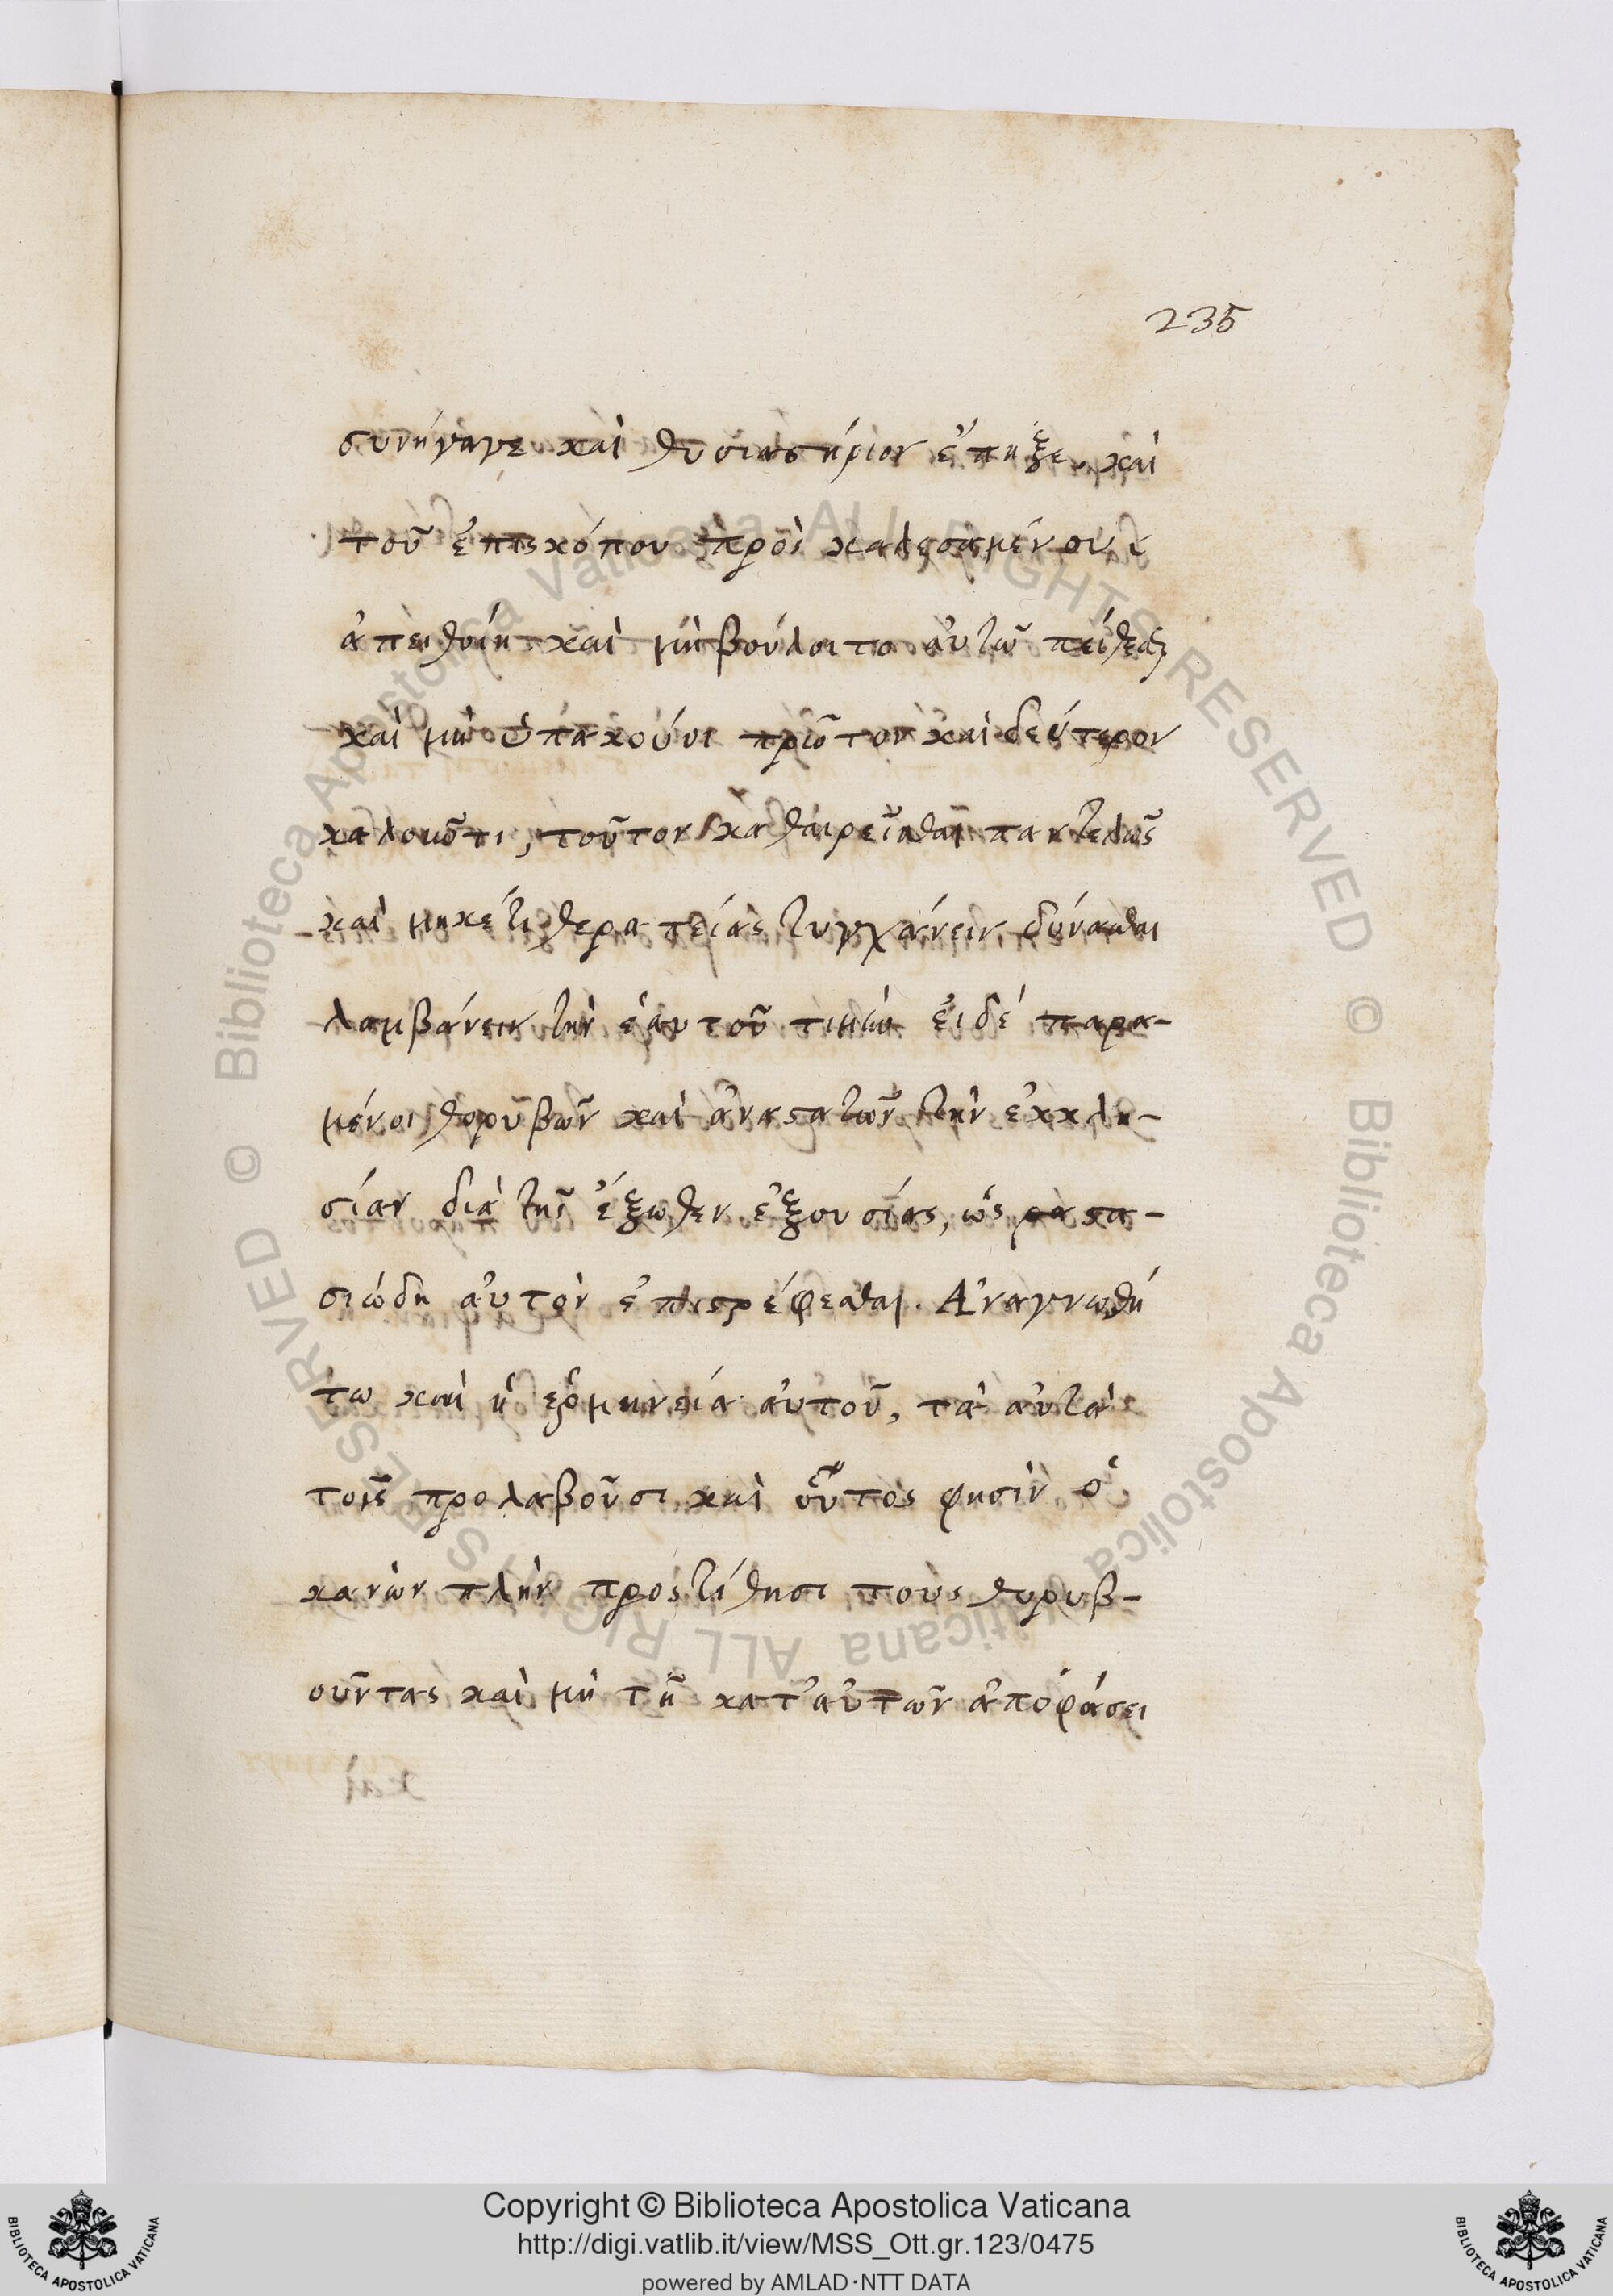 235
συνήγαγε καὶ θυσιαστήριον ἔπηξε, καὶ
τοῦ ἐπισκόπου προσκαλεσαμένου
ἀπειθοίη καὶ μὴ βούλοιτο αὐτῶ πείθεσθαι
καὶ μὴ ὑπακούοι πρῶτον καὶ δεύτερον
καλοῦντι, τοῦτον καθαιρεῖσθαι παντελῶς
καὶ μηκέτι θεραπείας τυγχάνειν δύνασθαι
λαμβάνειν τὴν ἑαυτοῦ τιμὴν εἰ δέ παρα-
μένοι θορυβῶν καὶ ἀναστατῶν τὴν ἐκκλη-
σίαν διὰ τῆς ἔξωθεν ἐξουσίας, ὡς στα-
σιώδη αὐτὸν ἐπιστρέφεσθαι. Ἀναγνωσθή
τω καὶ ἡ ἑρμηνεία αὐτοῦ, τὰ αὐτὰ
τοῖς προλαβοῦσι καὶ οὗτος φησὶν ὁ
κανὼν πλὴν προστίθησι τοὺς θορυβ-
οῦντας καὶ μὴ τῆ κατ' αὐτῶν ἀποφάσει
Copyright © Biblioteca Apostolica Vaticana
http://digi.vatlib.it/view/MSS_Ott.gr.123/0475
powered by AMLAD·NTT DATA
© Biblioteca Apostolica Vaticana ALL RIGHTS RESERVED © Biblioteca Apostolica Vaticana ALL RIGHTS RESERVED
BIBLIOTECA APOSTOLICA VATICANA
BIBLIOTECA APOSTOLICA VATICANA